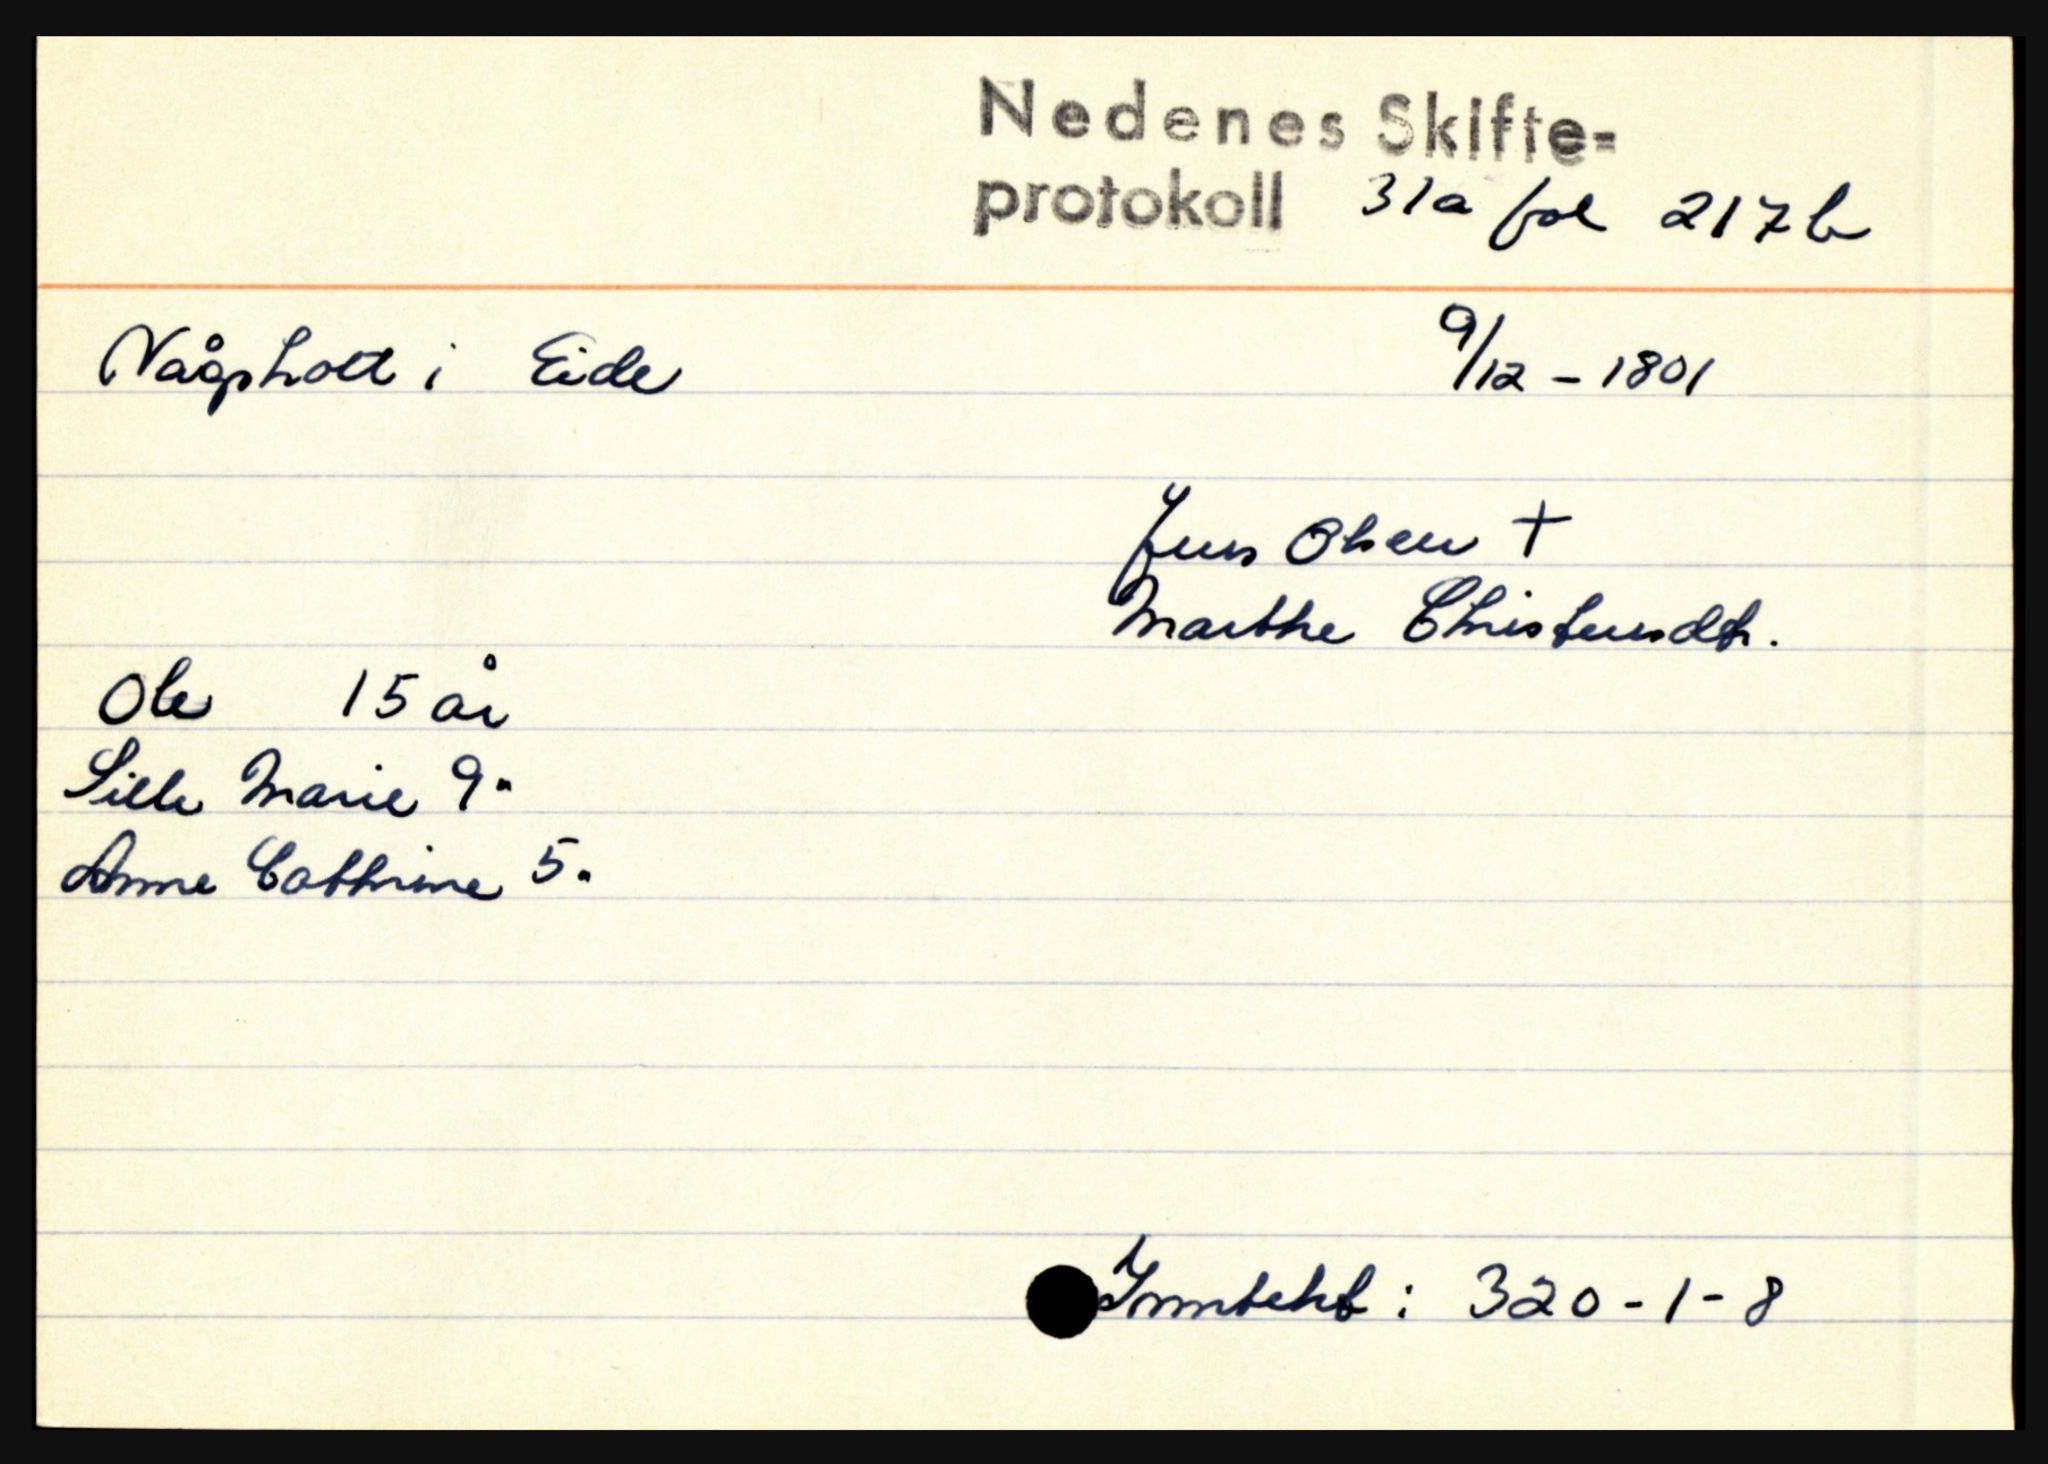 Nedenes Skifte=
protokoll 31a fol 217b
Vågsholt i Eide 9/12 - 1801
Jens Olsen +
Marthe Christensdtr.
Ole 15 år
Sille Marie 9"
Anne Cathrine 5"
Inntekt: 320-1-8